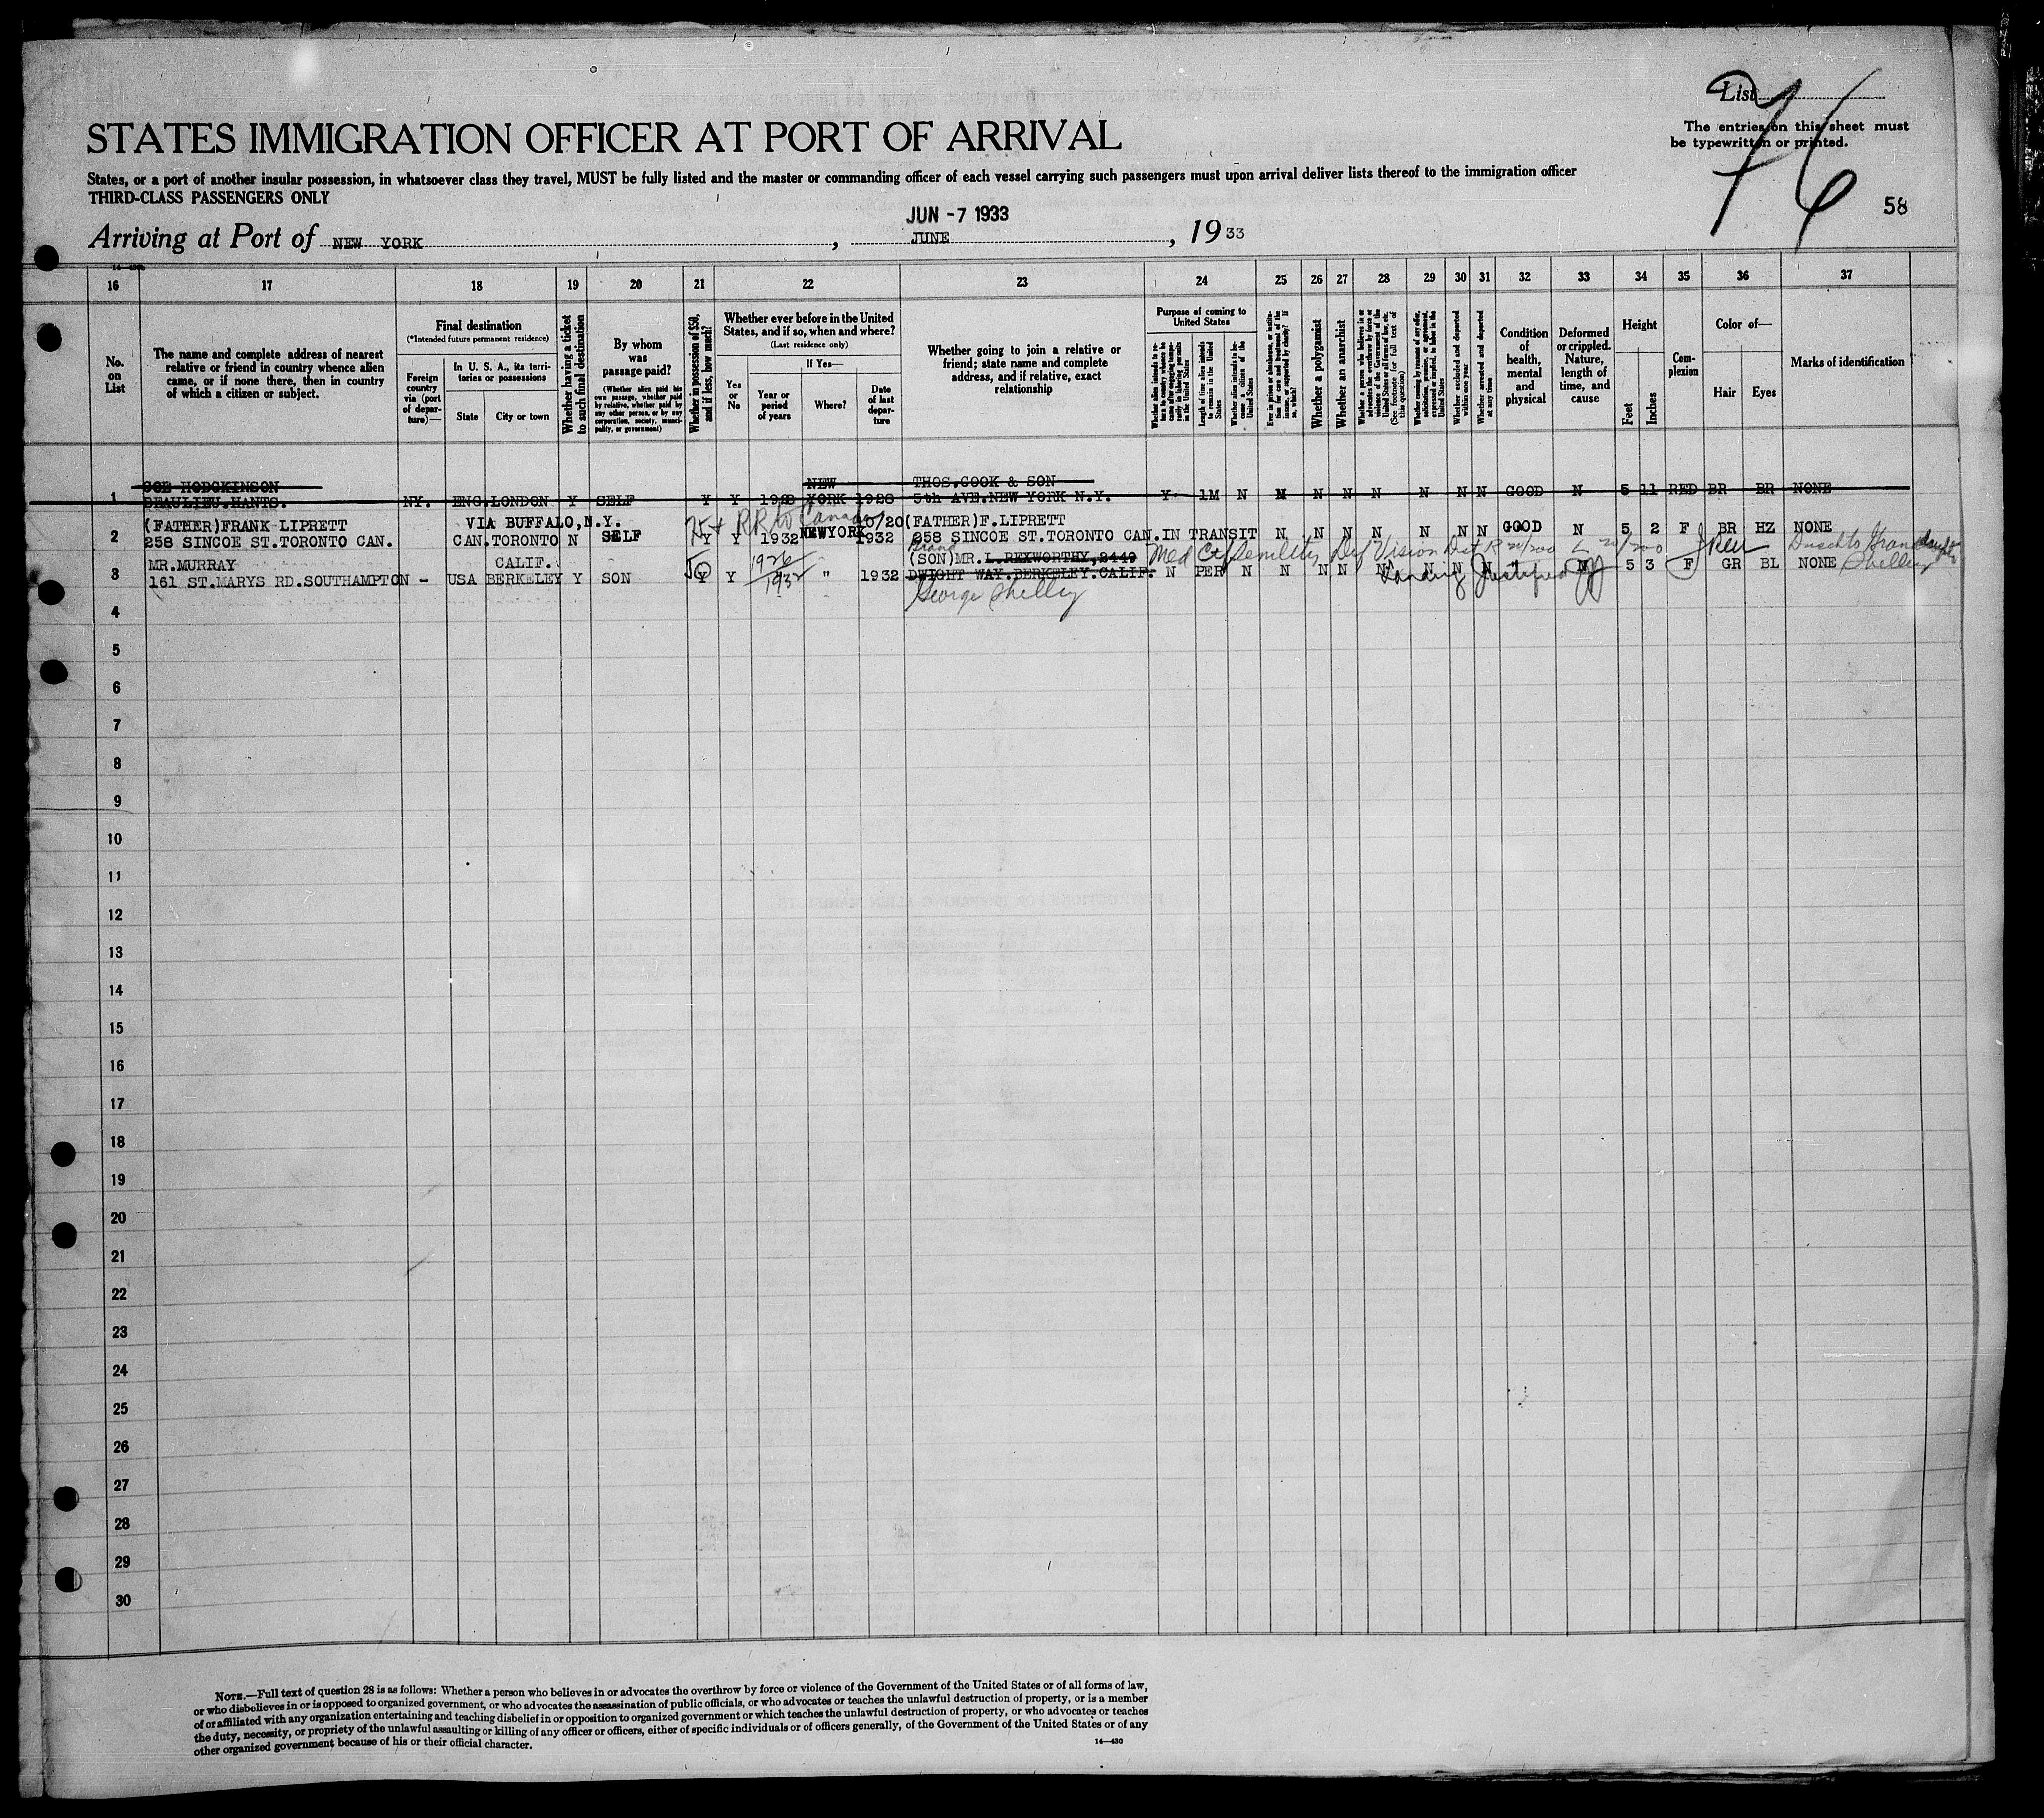 List
The entries on this sheet must
be typewritten or printed.
76
58
STATES IMMIGRATION OFFICER AT PORT OF ARRIVAL
States, or a port of another insular possession, in whatsoever class they travel, MUST be fully listed and the master or commanding officer of each vessel carrying such passengers must upon arrival deliver lists thereof to the immigration officer
THIRD-CLASS PASSENGERS ONLY
JUN -7 1933
Arriving at Port of NEW YORK , JUNE , 19 33
16 17 18 19 20 21 22 23 24 25 26 27 28 29 30 31 32 33 34 35 36 37
No.
on
List
The name and complete address of nearest
relative or friend in country whence alien
came, or if none there, then in country
of which a citizen or subject.
Final destination
(*Intended future permanent residence)
Foreign
country
via (port
of depar-
ture)—
In U. S. A., its terri-
tories or possessions
State
City or town
Whether having a ticket
to such final destination
By whom
was
passage paid?
(Whether alien paid his
own passage, whether paid
by relative, whether paid by
any other person, or by any
corporation, society, munici-
pality, or government)
Whether in possession of $50,
and if less, how much?
Whether ever before in the United
States, and if so, when and where?
(Last residence only)
Yes
or
No
If Yes—
Year or
period
of years
Where?
Date
of last
depar-
ture
Whether going to join a relative or
friend; state name and complete
address, and if relative, exact
relationship
Purpose of coming to
United States
Whether alien intends to re-
turn to country whence he
came after engaging tempo-
rarily in laboring pursuits
in the United States
Length of time alien intends
to remain in the United
States
Whether alien intends to be-
come a citizen of the
United States
Ever in prison or almshouse, or institu-
tion for care and treatment of the
insane, or supported by charity? If
so, which?
Whether a polygamist
Whether an anarchist
Whether a person who believes in or
advocates the overthrow by force or
violence of the Government of the
United States or all forms of law, etc.
(See footnote for full text of
this question)
Whether coming by reason of any offer,
solicitation, promise, or agreement,
expressed or implied, to labor in the
United States
Whether excluded and deported
within one year
Whether arrested and deported
at any time
Condition
of
health,
mental
and
physical
Deformed
or crippled.
Nature,
length of
time, and
cause
Height
Feet
Inches
Com-
plexion
Color of—
Hair
Eyes
Marks of identification
HODGKINSON NEW THOS.COOK & SON
1 BEAULIEU.HANTS. NY. ENG.LONDON Y SELF Y Y 1928 YORK 1928 5th AVE.NEW YORK N.Y. Y 1M N N N N N N N N GOOD N 5 11 RED BR BR NONE
(FATHER)FRANK LIPRETT VIA BUFFALO,N.Y. 75+ RR to Canada 10/20 (FATHER)F.LIPRETT
2 258 SINCOE ST.TORONTO CAN. CAN.TORONTO N SELF Y Y 1932 NEWYORK 1932 258 SINCOE ST.TORONTO CAN. IN TRANSIT N N N N N N N GOOD N 5 2 F BR HZ NONE
MR.MURRAY CALIF. 50 1926 Grand (SON)MR.L.REXWORTHY,2449 Med Ctf Senility Def Vision Dist R 20/200 L 20/200
3 161 ST.MARYS RD.SOUTHAMPTON - USA BERKELEY Y SON Y Y 1932 " 1932 DWIGHT WAY.BERKELEY.CALIF. N PER N N N N N N N N N 5 3 F GR BL NONE Shelley
Landing Justified
George Shelley
4
5
6
7
8
9
10
11
12
13
14
15
16
17
18
19
20
21
22
23
24
25
26
27
28
29
30
NOTE.—Full text of question 28 is as follows: Whether a person who believes in or advocates the overthrow by force or violence of the Government of the United States or of all forms of law,
or who disbelieves in or is opposed to organized government, or who advocates the assassination of public officials, or who advocates or teaches the unlawful destruction of property, or is a member
of or affiliated with any organization entertaining and teaching disbelief in or opposition to organized government or which teaches the unlawful destruction of property, or who advocates or teaches
the duty, necessity, or propriety of the unlawful assaulting or killing of any officer or officers, either of specific individuals or of officers generally, of the Government of the United States or of any
other organized government because of his or their official character.
14—430